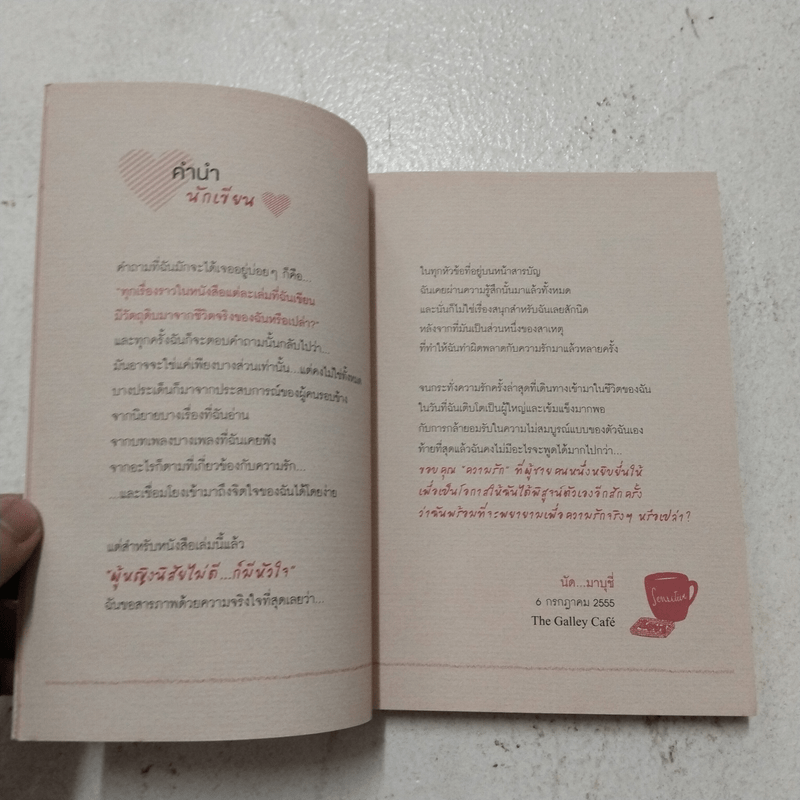 คำนำ
นักเขียน
คำถามที่ฉันมักจะได้เจออยู่บ่อยๆ ก็คือ...
"ทุกเรื่องราวในหนังสือแต่ละเล่มที่ฉันเขียน
มีวัตถุดิบมาจากชีวิตจริงของฉันหรือเปล่า"
และทุกครั้งฉันก็จะตอบคำถามนั้นกลับไปว่า...
มันอาจจะใช่แค่เพียงบางส่วนเท่านั้น...แต่คงไม่ใช่ทั้งหมด
บางประเด็นก็มาจากประสบการณ์ของผู้คนรอบข้าง
จากนิยายบางเรื่องที่ฉันอ่าน
จากบทเพลงบางเพลงที่ฉันเคยฟัง
จากอะไรก็ตามที่เกี่ยวข้องกับความรัก...
...และเชื่อมโยงเข้ามาถึงจิตใจของฉันได้โดยง่าย
แต่สำหรับหนังสือเล่มนี้แล้ว
"ผู้หญิงนิสัยไม่ดี...ก็มีหัวใจ"
ฉันขอสารภาพด้วยความจริงใจที่สุดเลยว่า...
ในทุกหัวข้อที่อยู่บนหน้าสารบัญ
ฉันเคยผ่านความรู้สึกนั้นมาแล้วทั้งหมด
และนั่นก็ไม่ใช่เรื่องสนุกสำหรับฉันเลยสักนิด
หลังจากที่มันเป็นส่วนหนึ่งของสาเหตุ
ที่ทำให้ฉันทำผิดพลาดกับความรักมาแล้วหลายครั้ง
จนกระทั่งความรักครั้งล่าสุดที่เดินทางเข้ามาในชีวิตของฉัน
ในวันที่ฉันเติบโตเป็นผู้ใหญ่และเข้มแข็งมากพอ
กับการกล้ายอมรับในความไม่สมบูรณ์แบบของตัวฉันเอง
ท้ายที่สุดแล้วฉันคงไม่มีอะไรจะพูดได้มากไปกว่า...
ขอบคุณ "ความรัก" ที่ผู้ชายคนหนึ่งหยิบยื่นให้
เพื่อเป็นโอกาสให้ฉันได้พิสูจน์ตัวเองอีกสักครั้ง
ว่าฉันพร้อมที่จะพยายามเพื่อความรักจริงๆ หรือเปล่า?
นัด...มาบุชี่
6 กรกฎาคม 2555
The Galley Café
Sensitive